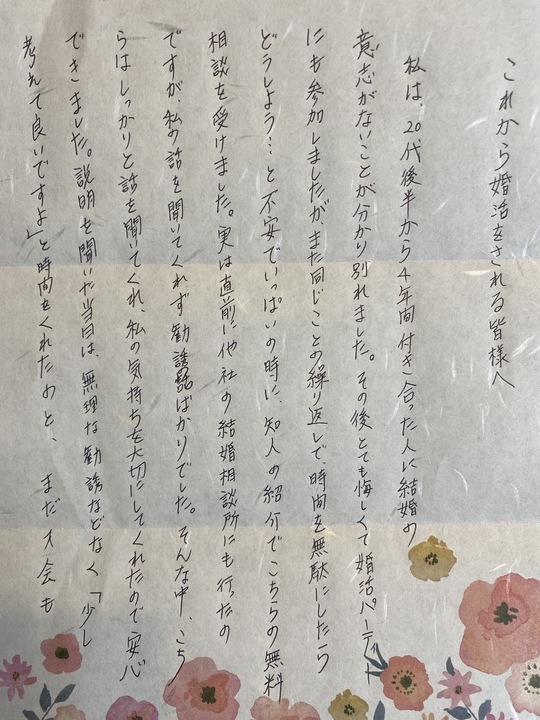 これから婚活をされる皆様へ
私は、20代後半から4年間付き合った人に結婚の
意志がないことが分かり別れました。その後とても悔しくて婚活パーティー
にも参加しましたが、また同じことの繰り返しで時間を無駄にしたら
どうしよう…と不安でいっぱいの時に、知人の紹介でこちらの無料
相談を受けました。実は直前に他社の結婚相談所にも行ったの
ですが、私の話を聞いてくれず勧誘ばかりでした。そんな中、こち
らはしっかりと話を聞いてくれ、私の気持ちを大切にしてくれたので安心
できました。説明を聞いた当日は、無理な勧誘などなく「少し
考えて良いですよ」と時間をくれたのと、まだ入会も